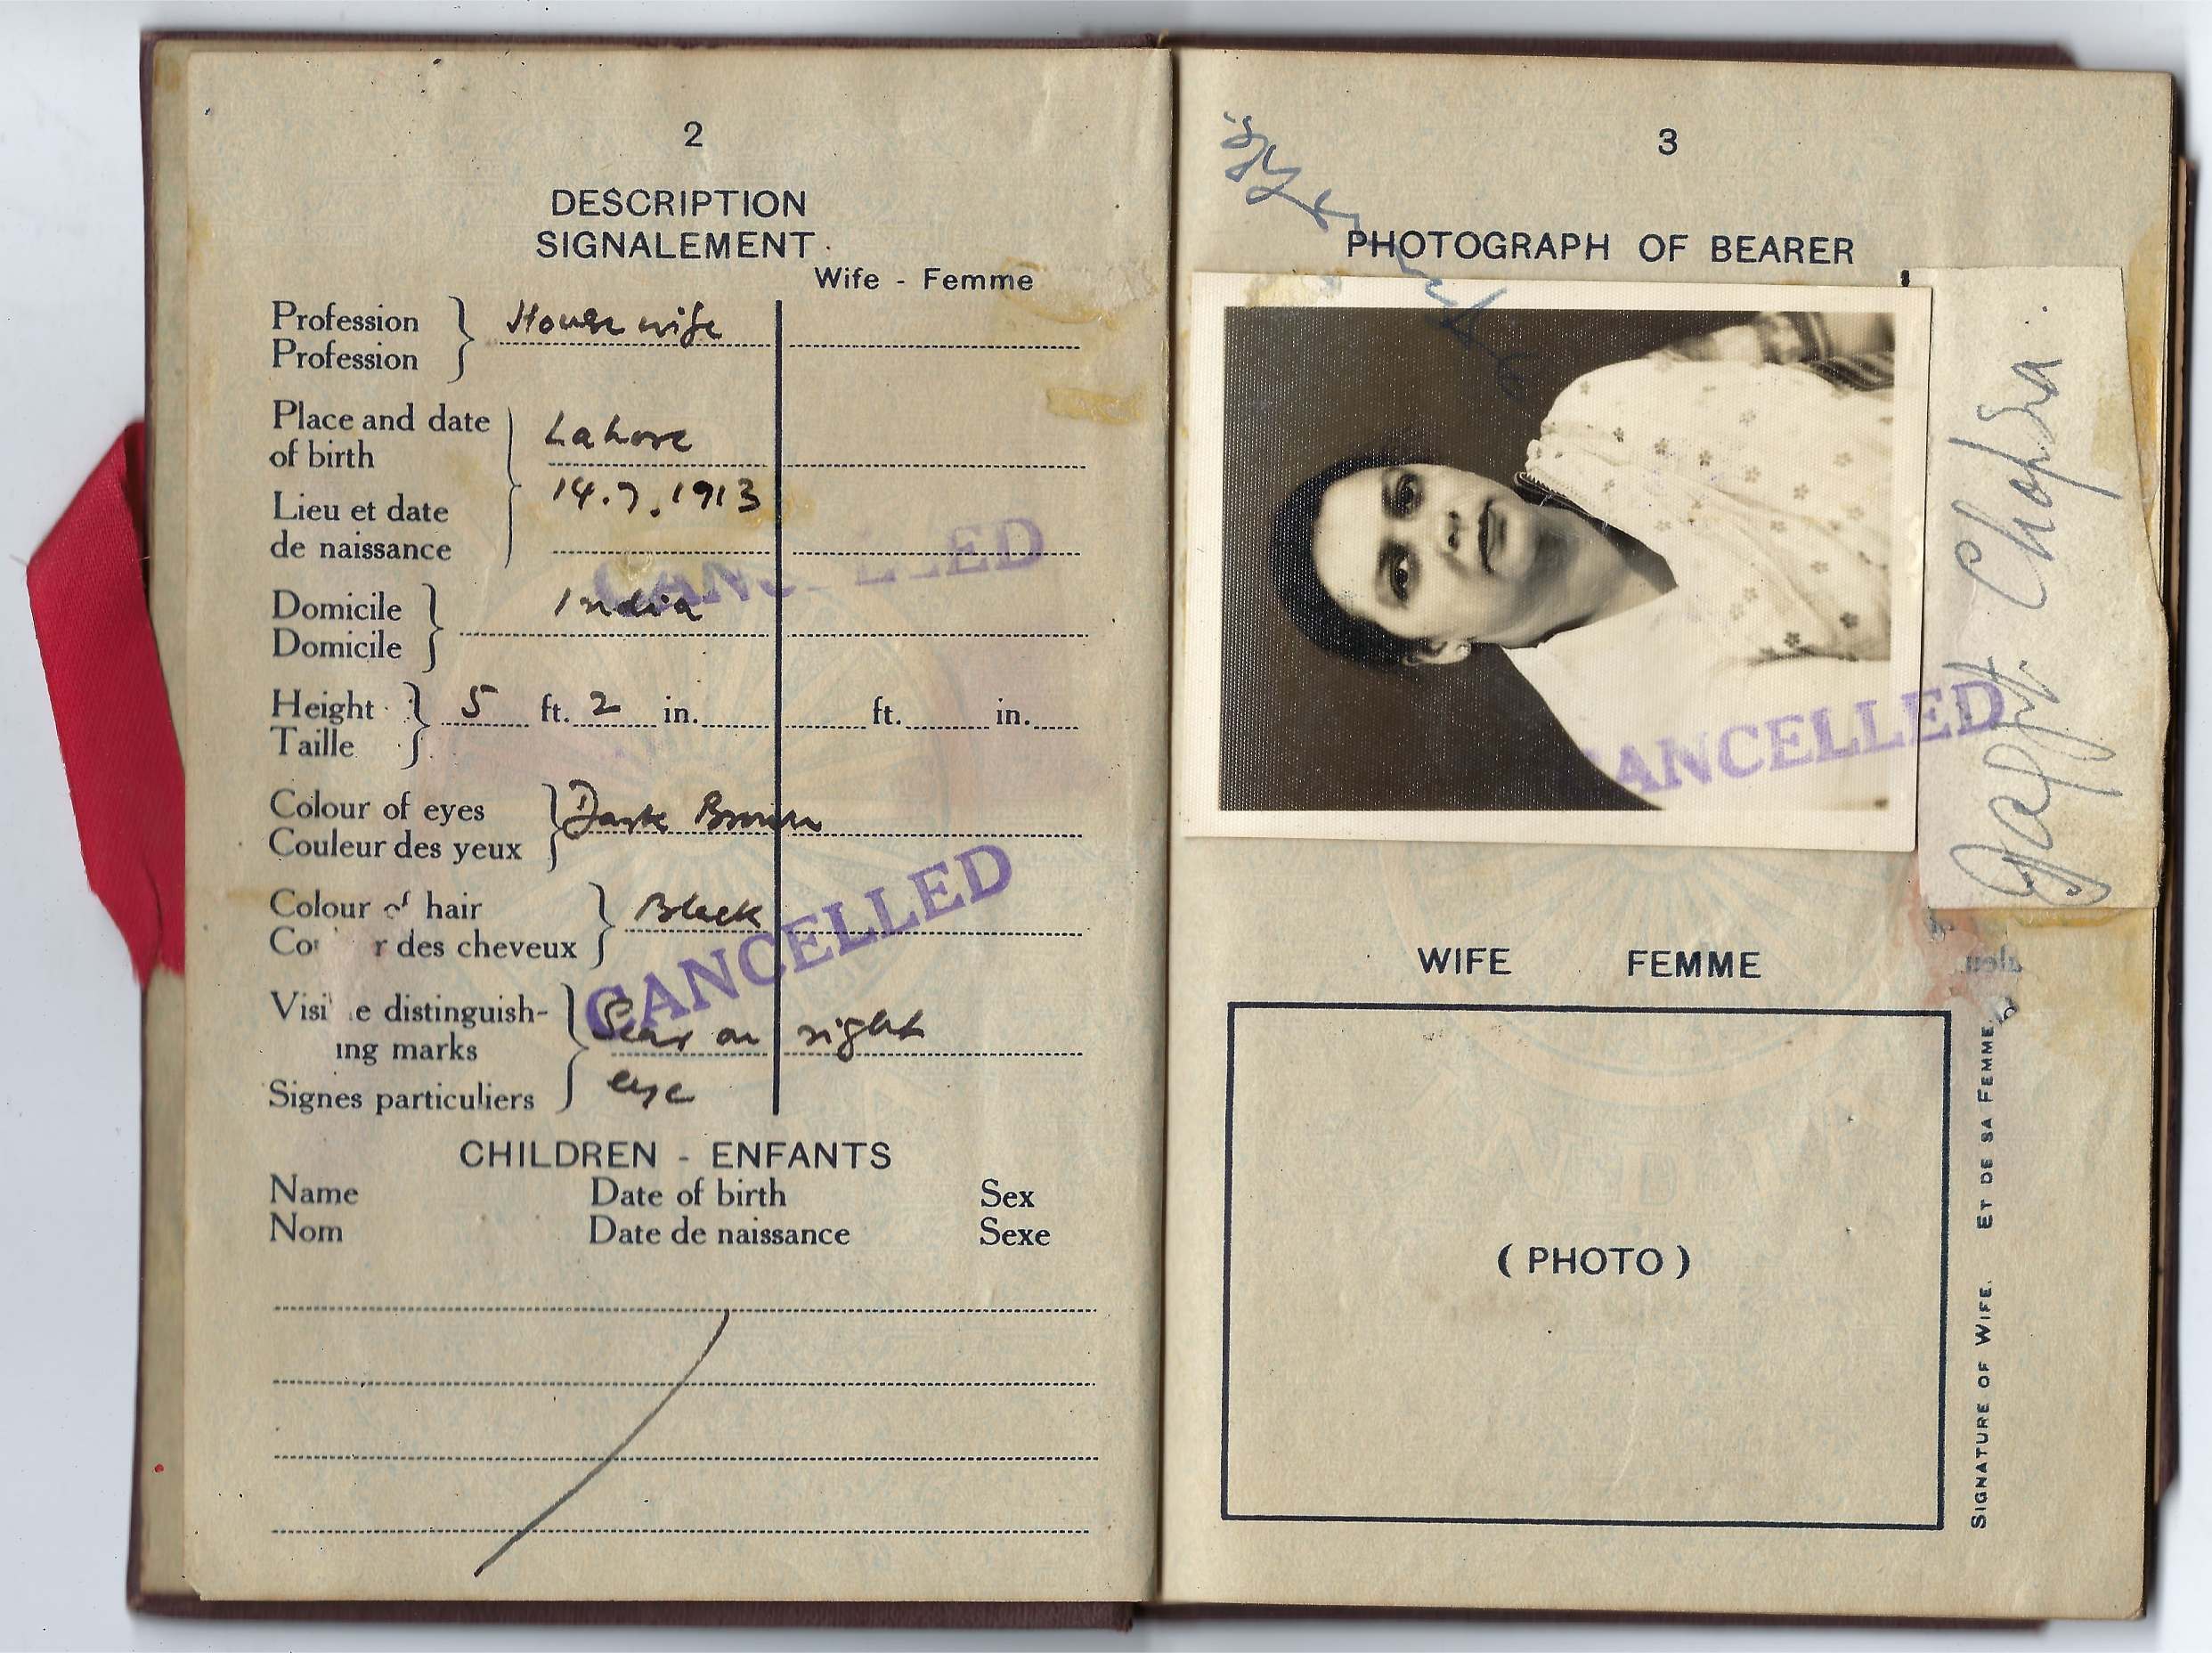 2
DESCRIPTION
SIGNALEMENT
Wife - Femme
Profession
Profession
House wife
Place and date
of birth
Lahore
Lieu et date
de naissance
14.7.1913
CANCELLED
Domicile
Domicile
India
Height
Taille
5 ft. 2 in. ft. in.
Colour of eyes
Couleur des yeux
Dark Brown
Colour of hair
Co r des cheveux
Black
CANCELLED
Visi e distinguish-
ing marks
Signes particuliers
Scar on right
eye
CHILDREN - ENFANTS
Name Date of birth Sex
Nom Date de naissance Sexe
3
PHOTOGRAPH OF BEARER
CANCELLED
Chopra
WIFE FEMME
(PHOTO)
SIGNATURE OF WIFE. ET DE SA FEMME